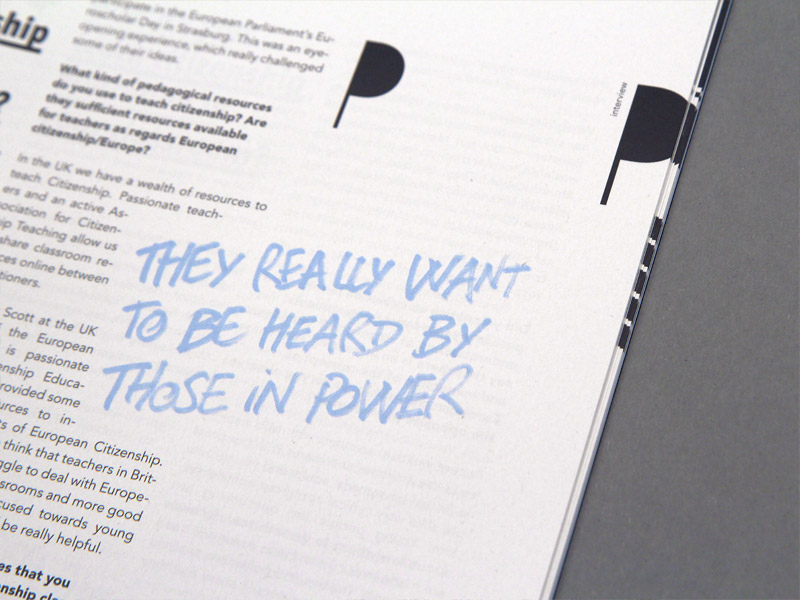 participate in the European Parliament's Eu-
roscholar Day in Strasburg. This was an eye-
opening experience, which really challenged
some of their ideas.
ship
?
What kind of pedagogical resources
do you use to teach citizenship? Are
they sufficient resources available
for teachers as regards European
citizenship/Europe?
In the UK we have a wealth of resources to
teach Citizenship. Passionate teach-
ers and an active As-
sociation for Citizen-
ip Teaching allow us
share classroom re-
ces online between
tioners.
Scott at the UK
the European
is passionate
enship Educa-
rovided some
urces to in-
ts of European Citizenship.
think that teachers in Brit-
ggle to deal with Europe-
srooms and more good
cused towards young
be really helpful.
es that you
nship cla
THEY REALLY WANT
TO BE HEARD BY
THOSE IN POWER
interview